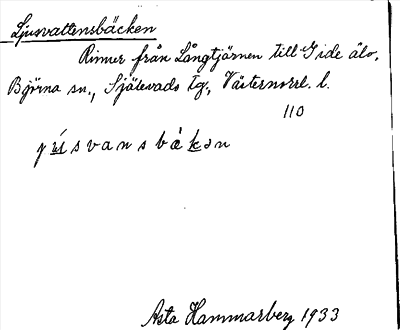 Ljusvattensbäcken
Rinner från Långtjärnen till Gide älv,
Björna sn., Själevads tg., Västernorrl. l.
110
Asta Hammarberg 1933